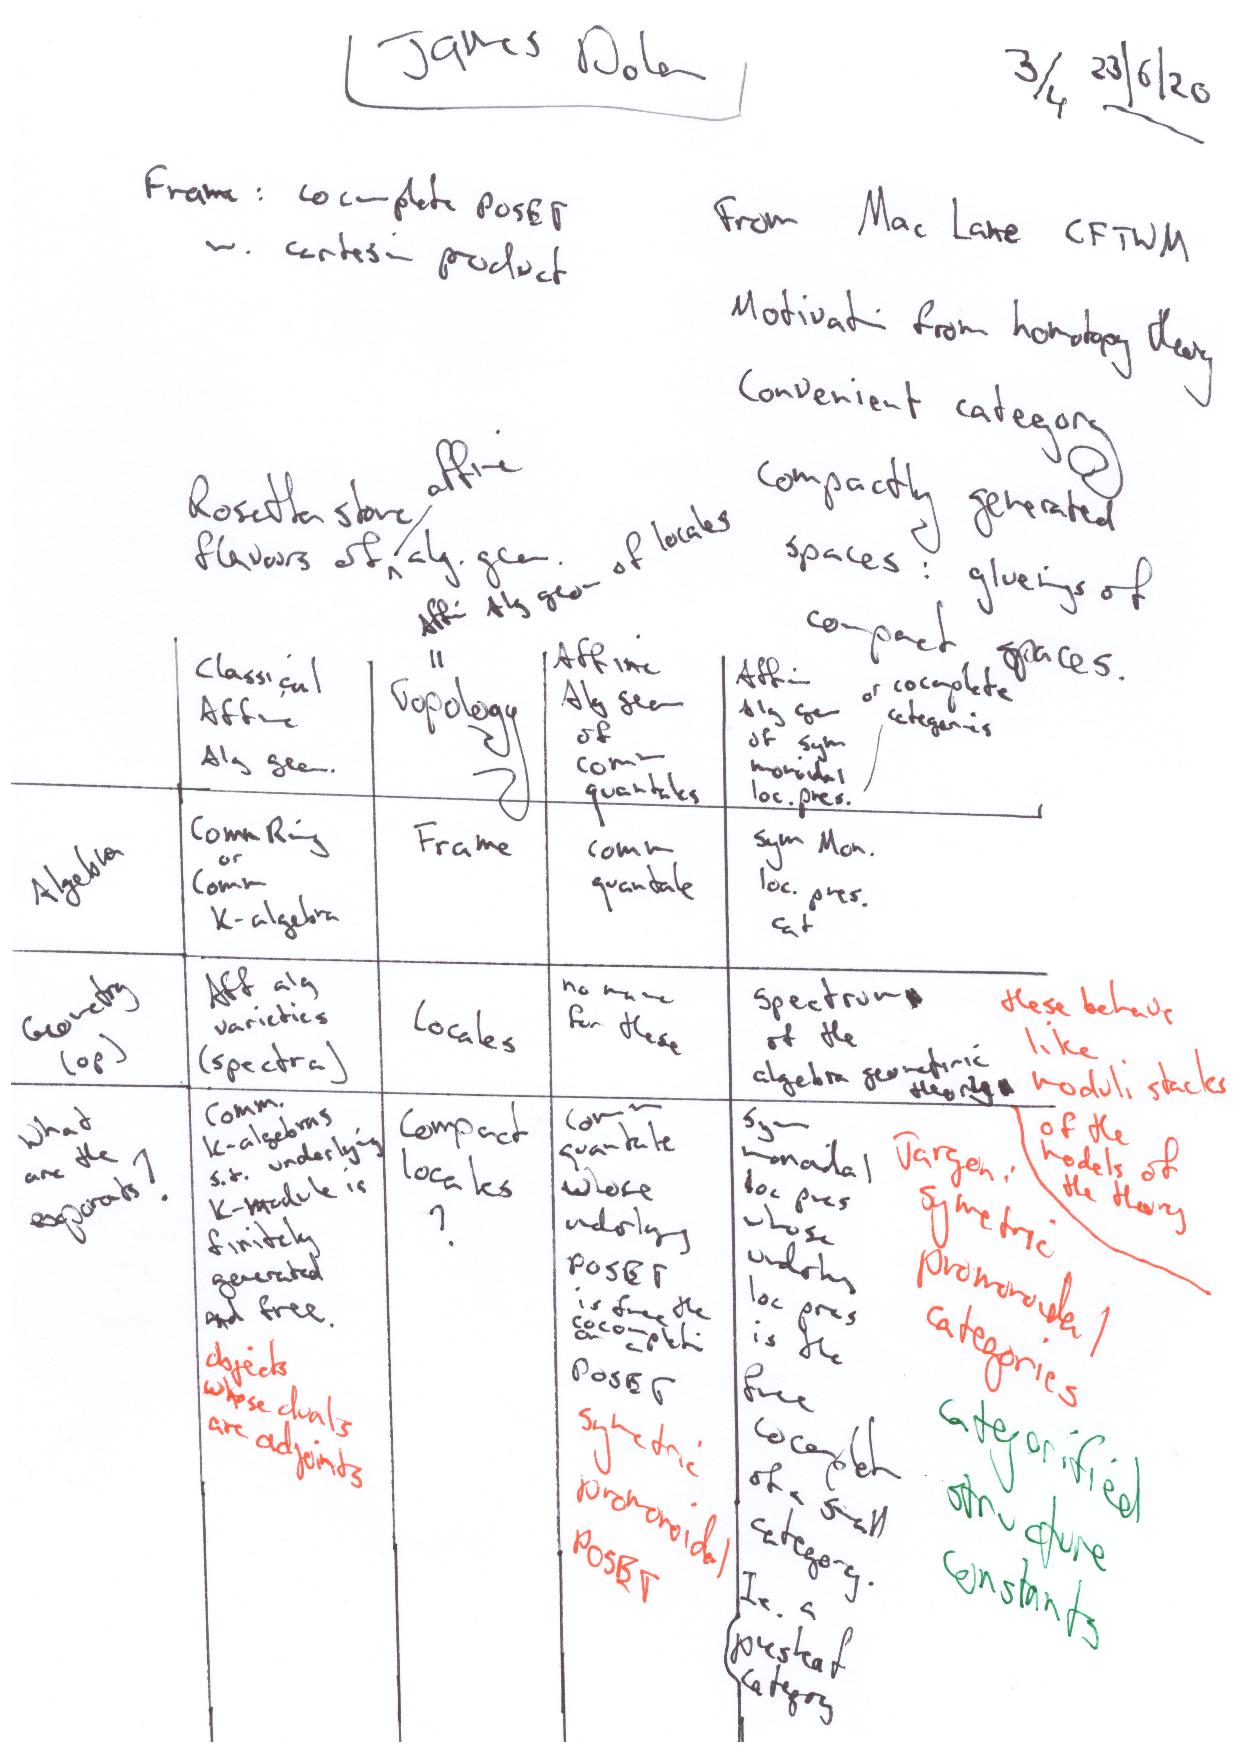 James Dolan
3/4 23/6/20
Frame : cocomplete POSET
w. cartesian product
From Mac Lane CFTWM
Motivation from homotopy theory
Convenient category
Compactly generated
spaces : glueings of
compact spaces.
Rosetta stone
affine
flavours of alg. geom.
Affine Alg geom of locales
=
Classical
Affine
Alg geom.
Topology
Affine
Alg geom
of
comm
quantales
Affine
Alg geom
of sym
monoidal
loc. pres.
or cocomplete
categories
Algebra
Comm Ring
or
Comm
K-algebra
Frame
comm
quantale
Sym Mon.
loc. pres.
cat
Geometry
(op)
Aff alg
varieties
(spectra)
Locales
no name
for these
Spectrum
of the
algebra geometric
theory
these behave
like
moduli stacks
of the
models of
the theory
What
are the
?
Comm.
K-algebras
s.t. underlying
K-module is
finitely
generated
and free.
objects
whose duals
are adjoints
Compact
locales
?
Comm
quantale
whose
underlying
POSET
is free the
cocompletion
POSET
Symetric
promonoidal
POSET
Sym
monoidal
loc pres
whose
underlying
loc pres
is the
free
cocompletn
of a small
category.
I.e. a
presheaf
category
Jargon :
Symetric
promonoidal
categories
Categorified
structure
constants